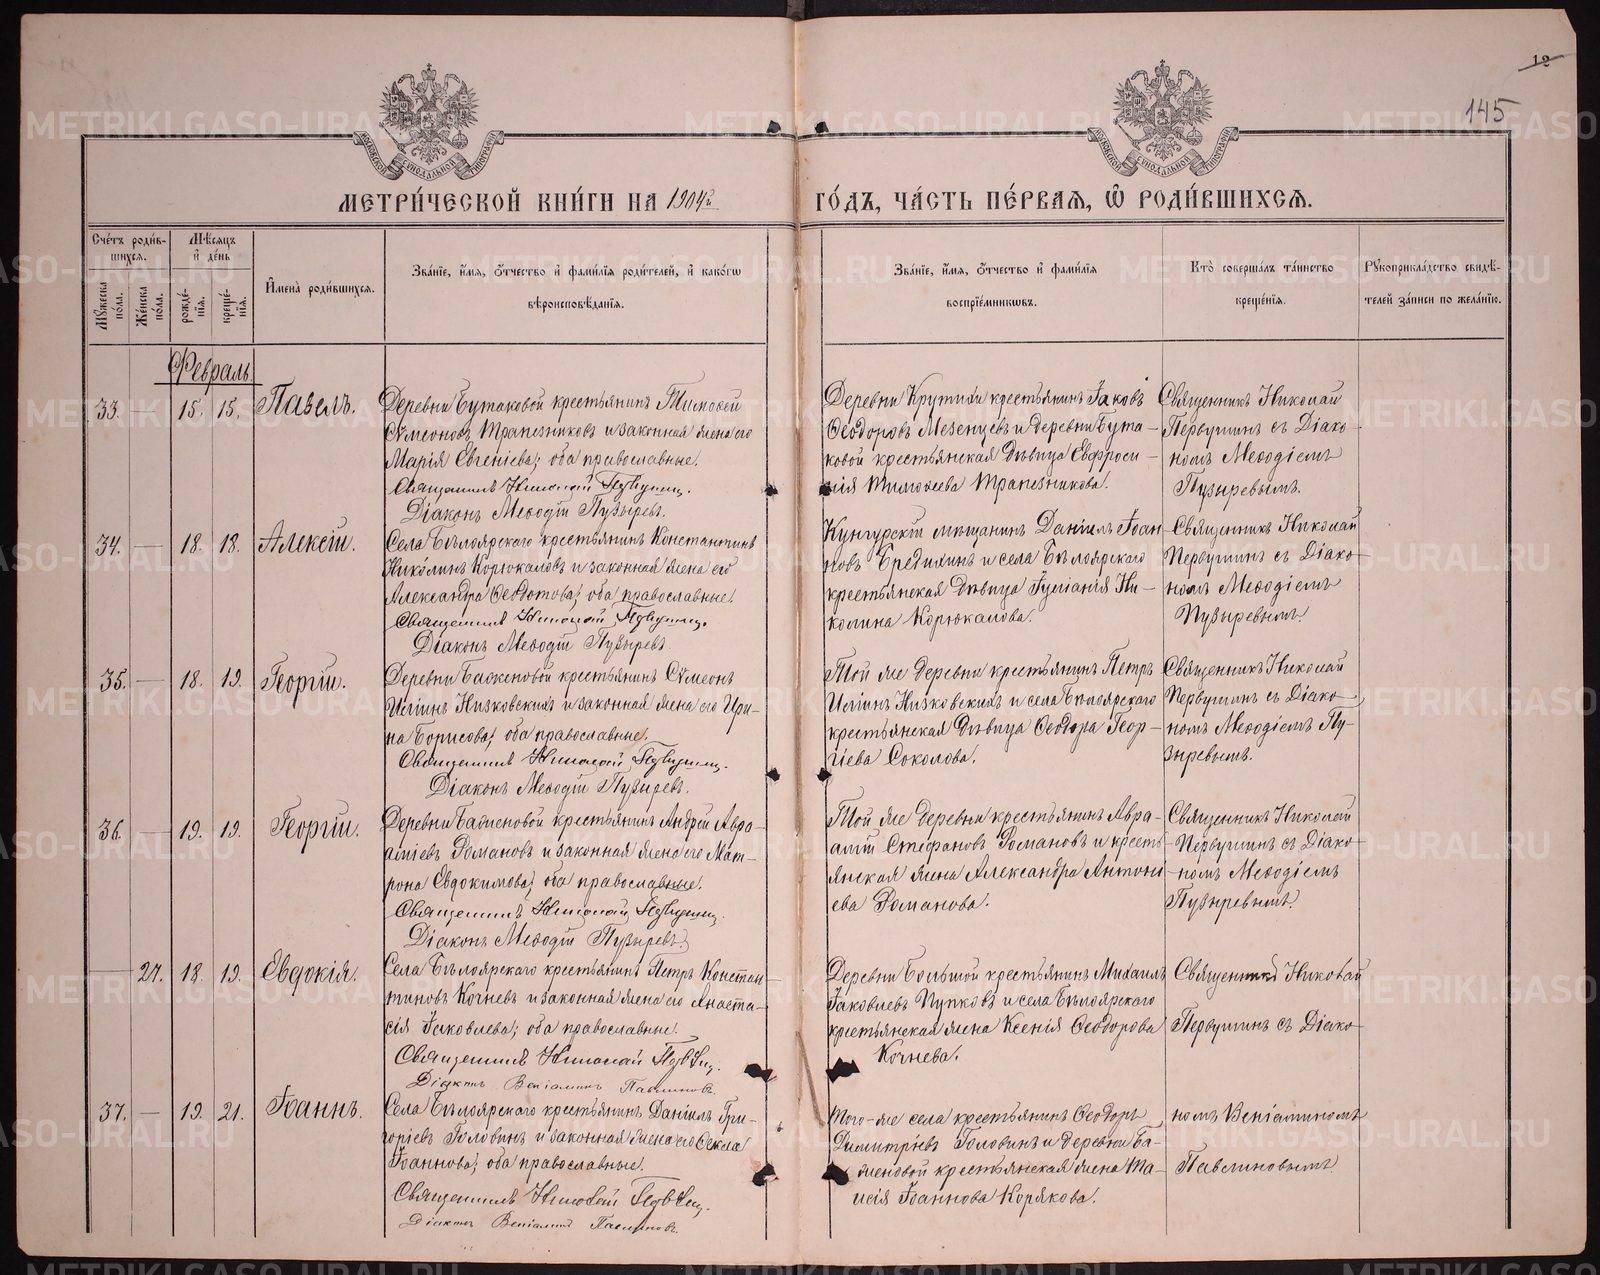 12
145
МЕТРИ́ЧЕСКОЙ КНИ́ГИ НА 1904й ГО́ДЪ, ЧА́СТЬ ПЕ́РВАЯ, Ѡ РОДИ́ВШИХСЯ.
Сче́тъ роди́в-
шихся.
Мꙋ́жеска по́ла.
Же́нска по́ла.
Мѣ́сяцъ
и҆ де́нь
рожде́-
нїѧ.
креще́-
нїѧ.
И҆мена̀ роди́вшихся.
Зва́нїе, и҆́мѧ, ѻ҆́тчество и҆ фами́лїѧ роди́телей, и҆ како́гѡ
вѣроисповѣ́данїѧ.
Зва́нїе, и҆́мѧ, ѻ҆́тчество и҆ фами́лїѧ
воспрїе́мникѡвъ.
Кто̀ соверша́лъ та́инство
креще́нїѧ.
Рꙋкоприкла́дство свидѣ́-
телей за́писи по жела́нїю.
Февраль
33. — 15. 15. Павелъ.
Деревни Бутаковой крестьянинъ Тимоѳей
Сѵмеоновъ Трапезниковъ и законная жена его
Марія Евгеніева; оба православные.
Священникъ Николай Первушин.
Діаконъ Меѳодій Пузыревъ.
Деревни Крутихи крестьянинъ Іаковъ
Ѳеодоровъ Мезенцевъ и деревни Бута-
ковой крестьянская дѣвица Евфроси-
нія Тимоѳеева Трапезникова.
Священникъ Николай
Первушинъ съ Діако-
номъ Меѳодіемъ
Пузыревымъ.
34. — 18. 18. Алексій.
Села Бѣлоярскаго крестьянинъ Константинъ
Николинъ Корюкаловъ и законная жена его
Александра Ѳеодотова; оба православные.
Священникъ Николай Первушин.
Діаконъ Меѳодій Пузыревъ.
Кунгурскій мѣщанинъ Даніилъ Іоан
новъ Бредихинъ и села Бѣлоярскаго
крестьянская дѣвица Іуліанія Ни-
колина Корюкалова.
Священникъ Николай
Первушинъ съ Діако-
номъ Меѳодіемъ
Пузыревымъ.
35. — 18. 19. Георгій.
Деревни Баженовой крестьянинъ Сѵмеонъ
Иліинъ Низковскихъ и законная жена его Ири-
на Борисова; оба православные.
Священникъ Николай Первушин.
Діаконъ Меѳодій Пузыревъ.
Той же деревни крестьянинъ Петръ
Иліинъ Низковскихъ и села Бѣлоярскаго
крестьянская дѣвица Ѳеодора Геор-
гіева Соколова.
Священникъ Николай
Первушинъ съ Діако-
номъ Меѳодіемъ Пу-
зыревымъ.
36. — 19. 19. Георгій.
Деревни Баженовой крестьянинъ Андрей Авра-
аміевъ Романовъ и законная жена его Мат-
рона Евдокимова; оба православные.
Священникъ Николай Первушин.
Діаконъ Меѳодій Пузыревъ.
Той же деревни крестьянинъ Авра-
амій Стефановъ Романовъ и кресть-
янская жена Александра Антони
ева Романова.
Священникъ Николай
Первушинъ съ Діако-
номъ Меѳодіемъ
Пузыревымъ.
— 27. 18. 19. Евдокія.
Села Бѣлоярскаго крестьянинъ Петръ Констан-
тиновъ Кочневъ и законная жена его Анаста-
сія Іаковлева; оба православные.
Священникъ Николай Первушин.
Діаконъ Веніаминъ Павлиновъ.
Деревни Большой крестьянинъ Михаилъ
Іаковлевъ Пупковъ и села Бѣлоярскаго
крестьянская жена Ксенія Ѳеодорова
Кочнева.
Священникъ Николай
Первушинъ съ Діако-
37. — 19. 21. Іоаннъ.
Села Бѣлоярскаго крестьянинъ Даніилъ Гри-
горіевъ Головинъ и законная жена его Ѳекла
Іоаннова; оба православные.
Священникъ Николай Первушин.
Діаконъ Веніаминъ Павлиновъ.
Того-же села крестьянинъ Ѳеодоръ
Димитріевъ Головинъ и деревни Ба-
женовой крестьянская жена Та-
исія Іоаннова Корякова.
номъ Веніаминомъ
Павлиновымъ.
METRIKI.GASO-URAL.RU